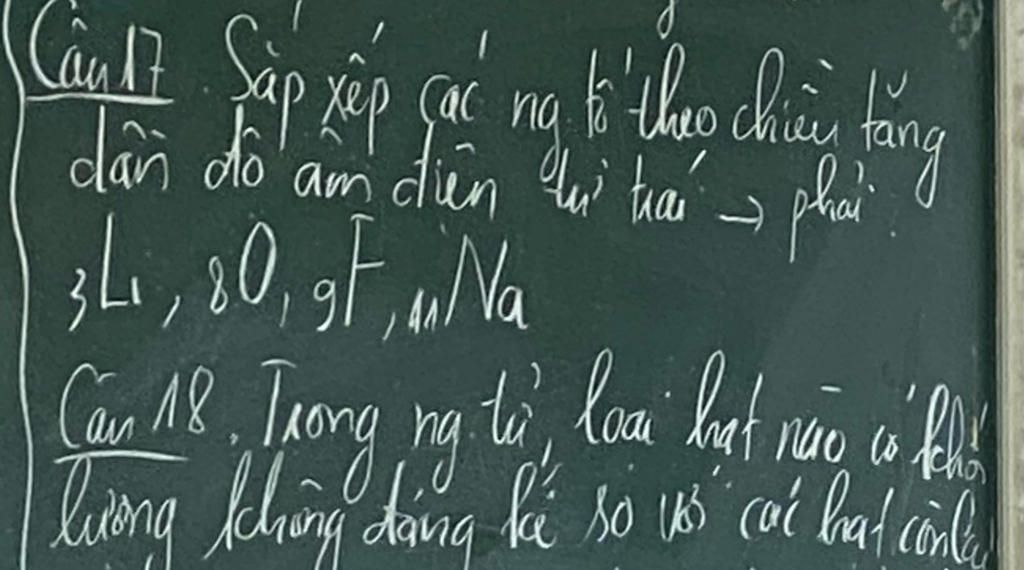 Câu 17. Sắp xếp các ng tố theo chiều tăng
dần độ âm điện từ trái → phải.
3Li, 8O, 9F, 11Na
Câu 18. Trong ng. tử, loại hạt nào có khối
lượng không đáng kể so với các hạt còn lại